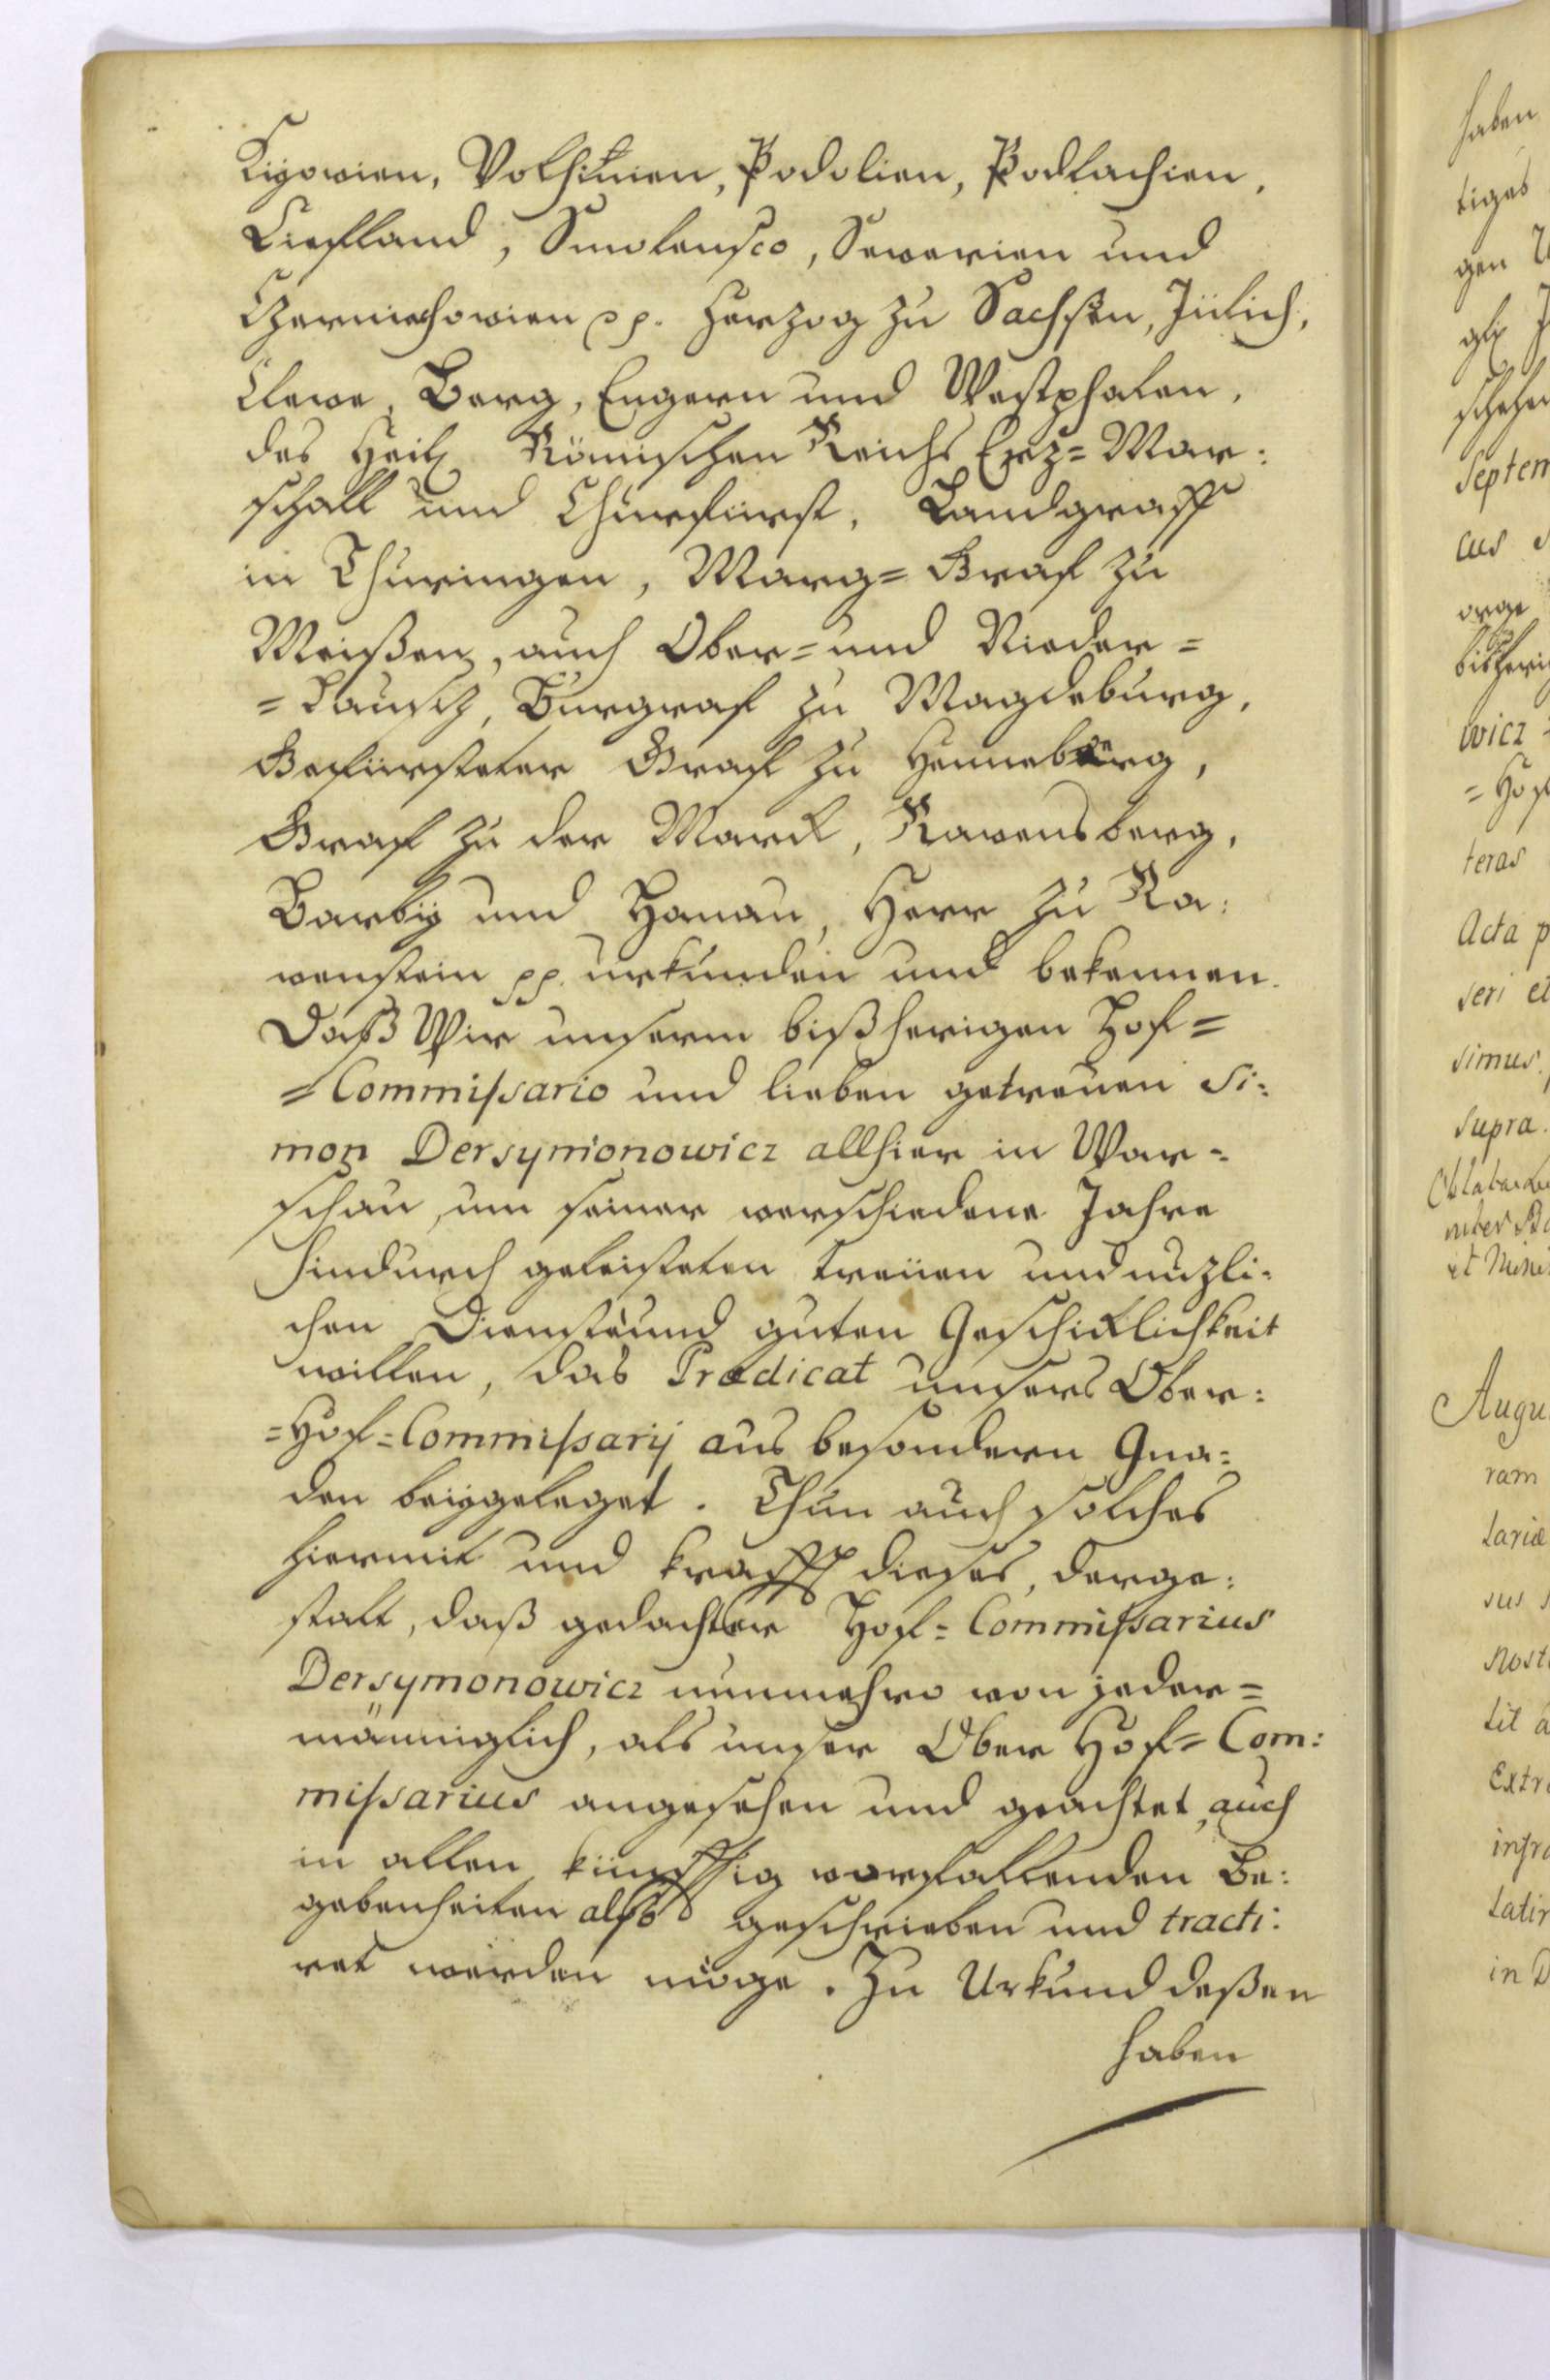 Kijowien, Volhinien, Podolien, Podlachien,
Liefland, Smolensco, Severien und
Czerniechowien pp. Herzog zu Sachßen, Jülich,
Cleve, Berg, Engern und Westphalen,
des Heil. Römischen Reichs Erz=Mar:
schall und Churfürst, Landgraff
in Thüringen, Marg=Graf zu
Meißen, auch Ober=und Nieder=
=Lausitz, Burgraf zu Magdeburg,
Gefürsteter Graf zu Henneberg,
Graf zu der Marck, Ravensberg,
Barby und Hanau, Herr zu Ra:
venstein pp. urkunden und bekennen.
Daß Wir unserm bißherigen Hof=
=Commissario und lieben getreuen Si:
mon Dersymonowicz allhier in War=
schau, um seiner verschiedene Jahre
hindurch geleisteten treüen und nuzli:
chen Dienste und guten Geschicklichkeit
willen, das Prædicat unsers Ober:
=Hof=Commissarij aus besondern Gna:
den beygeleget. Thun auch solches
hiermit und krafft dieses, derge:
stalt, daß gedachter Hof=Commissarius
Dersymonowicz nunmehro von jeder=
männiglich, als unser Ober Hof=Com:
missarius angesehen und geachtet, auch
in allen künfftig vorfallenden Be:
gebenheiten also geschrieben und tracti:
ret werden möge. Zu Urkund deßen
haben
haben
tiges
gen
schehen
Septem
cus
bisheri
wicz =
=Hof
teras
Acta p
seri et
simus
supra.
Oblatande
inter
et Mini
Augu
ram
lariæ
sus s
Nost
tit a
Extra
infra
Latin
in D